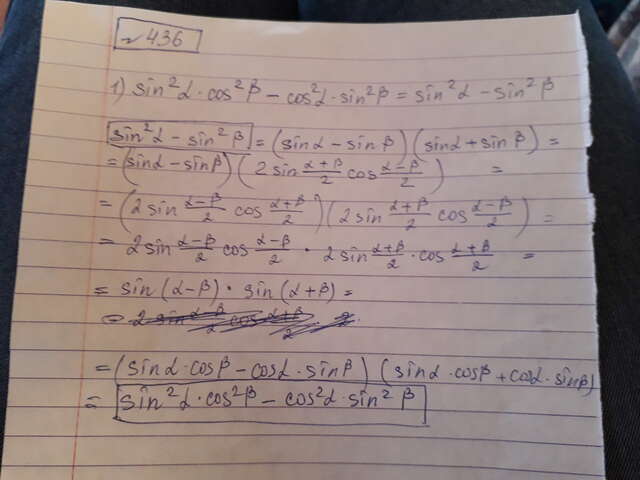 ~ 436
1) sin²α·cos²β − cos²α·sin²β = sin²α − sin²β
sin²α − sin²β = (sinα − sinβ)(sinα + sinβ) =
= (sinα − sinβ)(2sin (α+β)/2 cos (α−β)/2) =
= (2sin (α−β)/2 cos (α+β)/2)(2sin (α+β)/2 cos (α−β)/2) =
= 2sin (α−β)/2 cos (α−β)/2 · 2sin (α+β)/2 · cos (α+β)/2 =
= sin(α−β) · sin(α+β) =
= (sinα·cosβ − cosα·sinβ)(sinα·cosβ + cosα·sinβ)
= sin²α·cos²β − cos²α·sin²β